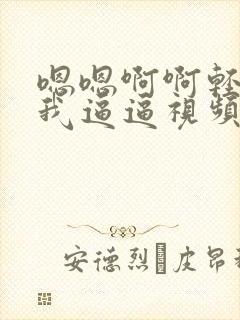 嗯嗯啊啊輕
我逼逼視頻
安德烈·皮昂